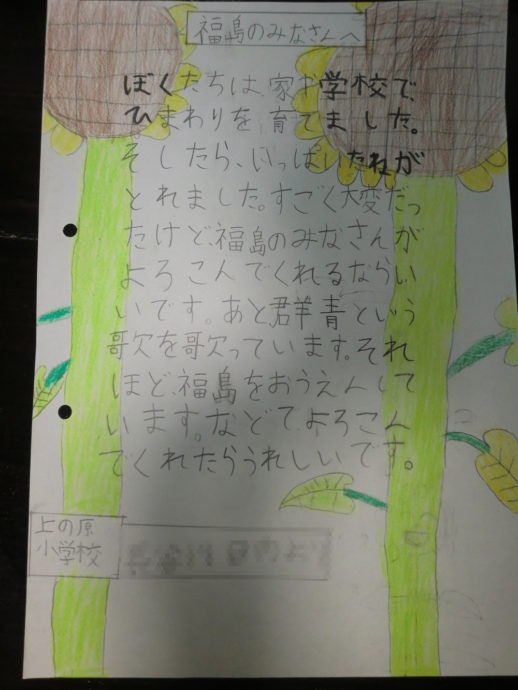 福島のみなさんへ
ぼくたちは、家や学校で、
ひまわりを育てました。
そしたら、いっぱいたねが
とれました。すごく大変だっ
たけど、福島のみなさんが
よろこんでくれるならい
いです。あと、群青という
歌を歌っています。それ
ほど、福島をおうえんして
います。などでよろこん
でくれたらうれしいです。
上の原
小学校